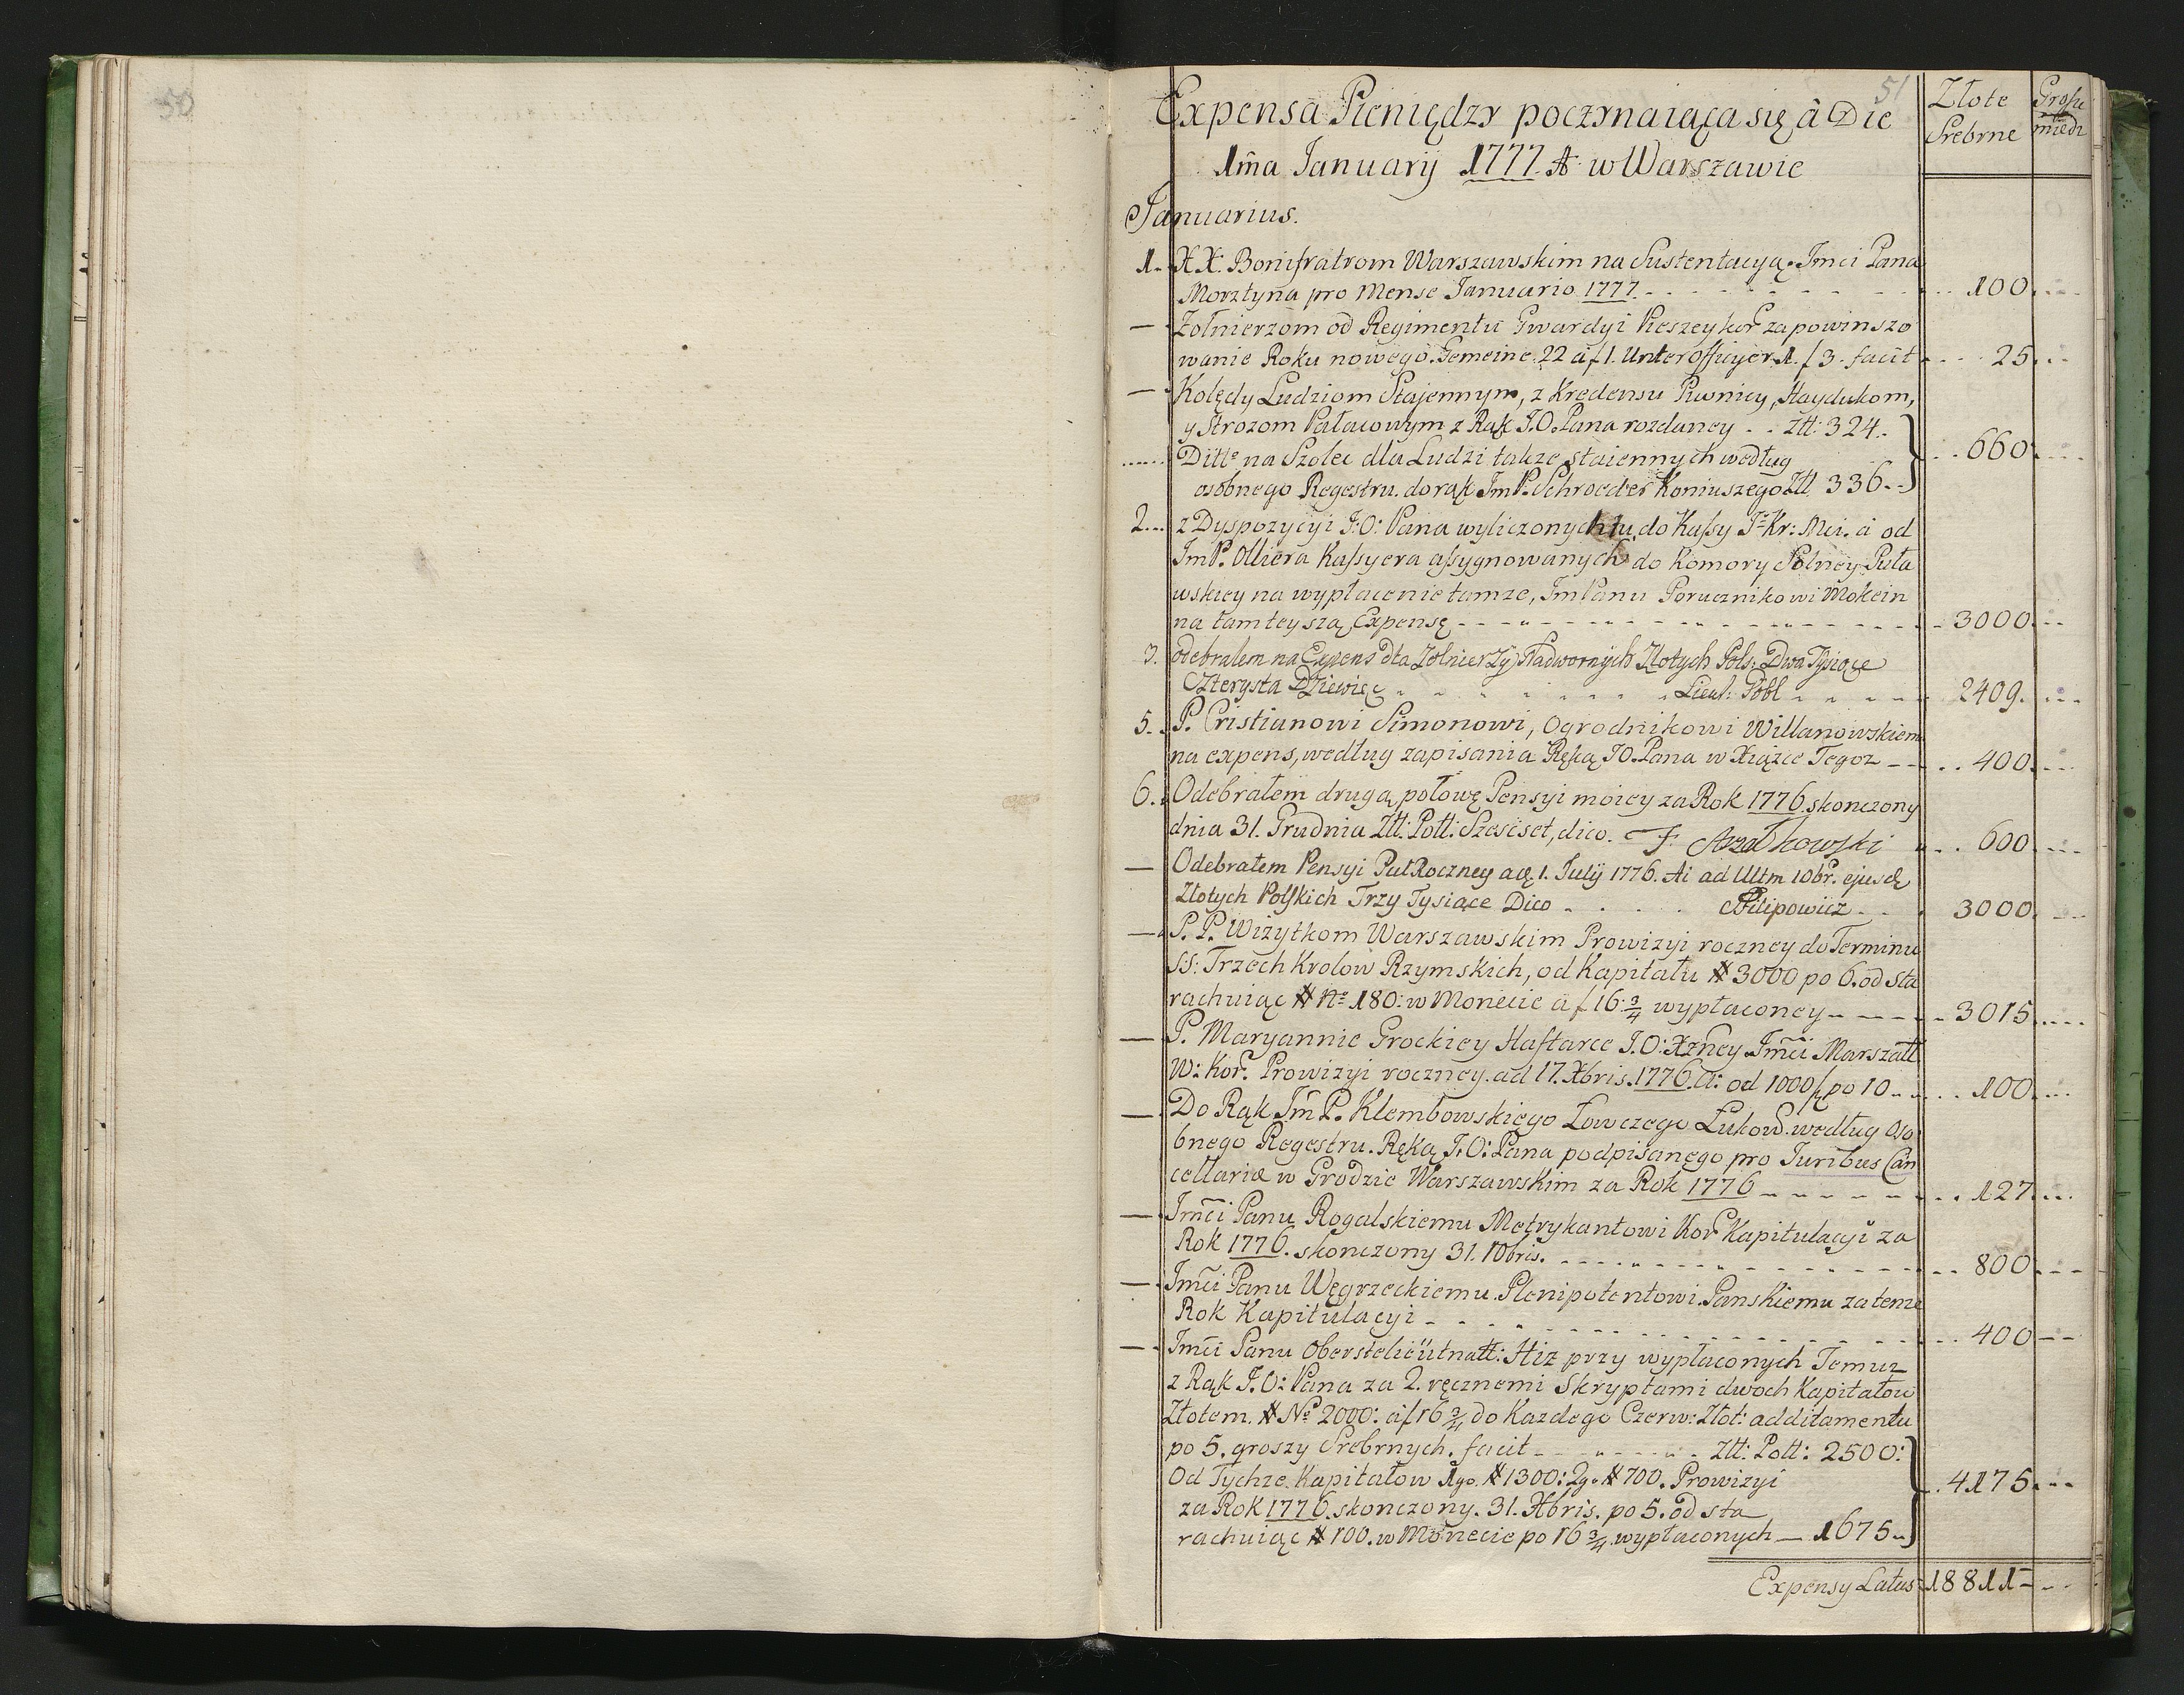 50
51
Expensa Pieniędzy poczynaiąca się â Die
1ma Januarij 1777. A. w Warszawie
Złote Srebrne
Grosze miedz
Januarius.
1. XX. Bonifratrom Warszawskim na Sustentacyą Jmci Pana
Morztyna pro Mense Januario 1777. 100.
— Zołnierzom od Regimentu Gwardyi Pieszey kor. za powinszo
wanie Roku nowego. Gemeine 22 a f 1. Unterofficyer 1. f 3. facit 25.
— Kolędy Ludziom Stajennym, z Kredensu Piwnicy, Haydukom,
y Strozom Pałacowym z Rąk J.O. Pana rozdaney Ztt: 324.
Ditto na Szolec dla Ludzi takze staiennych według 660.
osobnego Regestru. do rąk Jm P. Schroeder Koniuszego Ztt 336.
2. z Dyspozycyi J:O: Pana wyliczonych tu do Kassy J. Kr: Mci. a od
Jm P. Olliera Kassyera assygnowanych do Komory Solney Puła
wskiey na wypłacenie tamze, Jm Panu Porucznikowi Mokein
na tamteyszą Expensę 3000.
3. odebralem na Expens dla Zolnierzy Nadwornych Zlotych Pols: Dwa Tysiące
Czterysta Dziewięc Lieut: Pöbl 2409.
5. P. Cristianowi Simonowi, Ogrodnikowi Willanowskiem
na expens, według zapisania Ręką JO. Pana w Xiążce Tegoz 400.
6. Odebrałem drugą połowę Pensyi moiey za Rok 1776. skonczony
dnia 31. Grudnia Ztt: Poll: Szescset, dico. F. Arzałkowski 600.
— Odebrałem Pensyi PułRoczney a 1. Julij 1776. Ai ad Ultm 10br. ejusd
Złotych Polskich Trzy Tysiące Dico Filipowicz 3000.
— P. P. Wizytkom Warszawskim Prowizyi roczney do Terminu
SS: Trzech Krolow Rzymskich, od Kapitału # 3000 po 6. od sta
rachuiąc # No 180: w Monecie a f 16 3/4 wypłaconey 3015.
— P. Maryannie Grockiey Haftarce J.O: Xzney Jmci Marszałł
W: Kor. Prowizyi roczney. ad 17. Xbris. 1776. A: od 1000 f po 10 100.
— Do Rąk Jm P. Klembowskiego Łowczego Łukow. według Oso
bnego Regestru. Ręką J.O: Pana podpisanego pro Juribus Can
cellariæ w Grodzie Warszawskim za Rok 1776 127.
— Jmci Panu Rogalskiemu Metrykantowi Kor. Kapitulacyi za
Rok 1776. skonczony 31. 10bris. 800
— Jmci Panu Węgrzeckiemu. Plenipotentowi. Panskiemu za tenze
Rok Kapitulacyi 400
— Jmci Panu Oberstelieütnatt: Hiz przy wypłaconych Temuz
z Rąk J.O: Pana za 2. ręcznemi Skryptami dwoch Kapitałow
Złotem. # No 2000: a f 16 3/4 do Kazdego Czerw: Złot: additamentu
po 5. groszy Srebrnych. facit Ztt: Poll: 2500:
Od Tychze Kapitałow 1go. # 1300: 2go # 700. Prowizyi 4175.
za Rok 1776. skonczony. 31. Xbris. po 5. od sta
rachuiąc # 100. w Monecie po 16 3/4 wypłaconych — 1675
Expensy Latus 18811